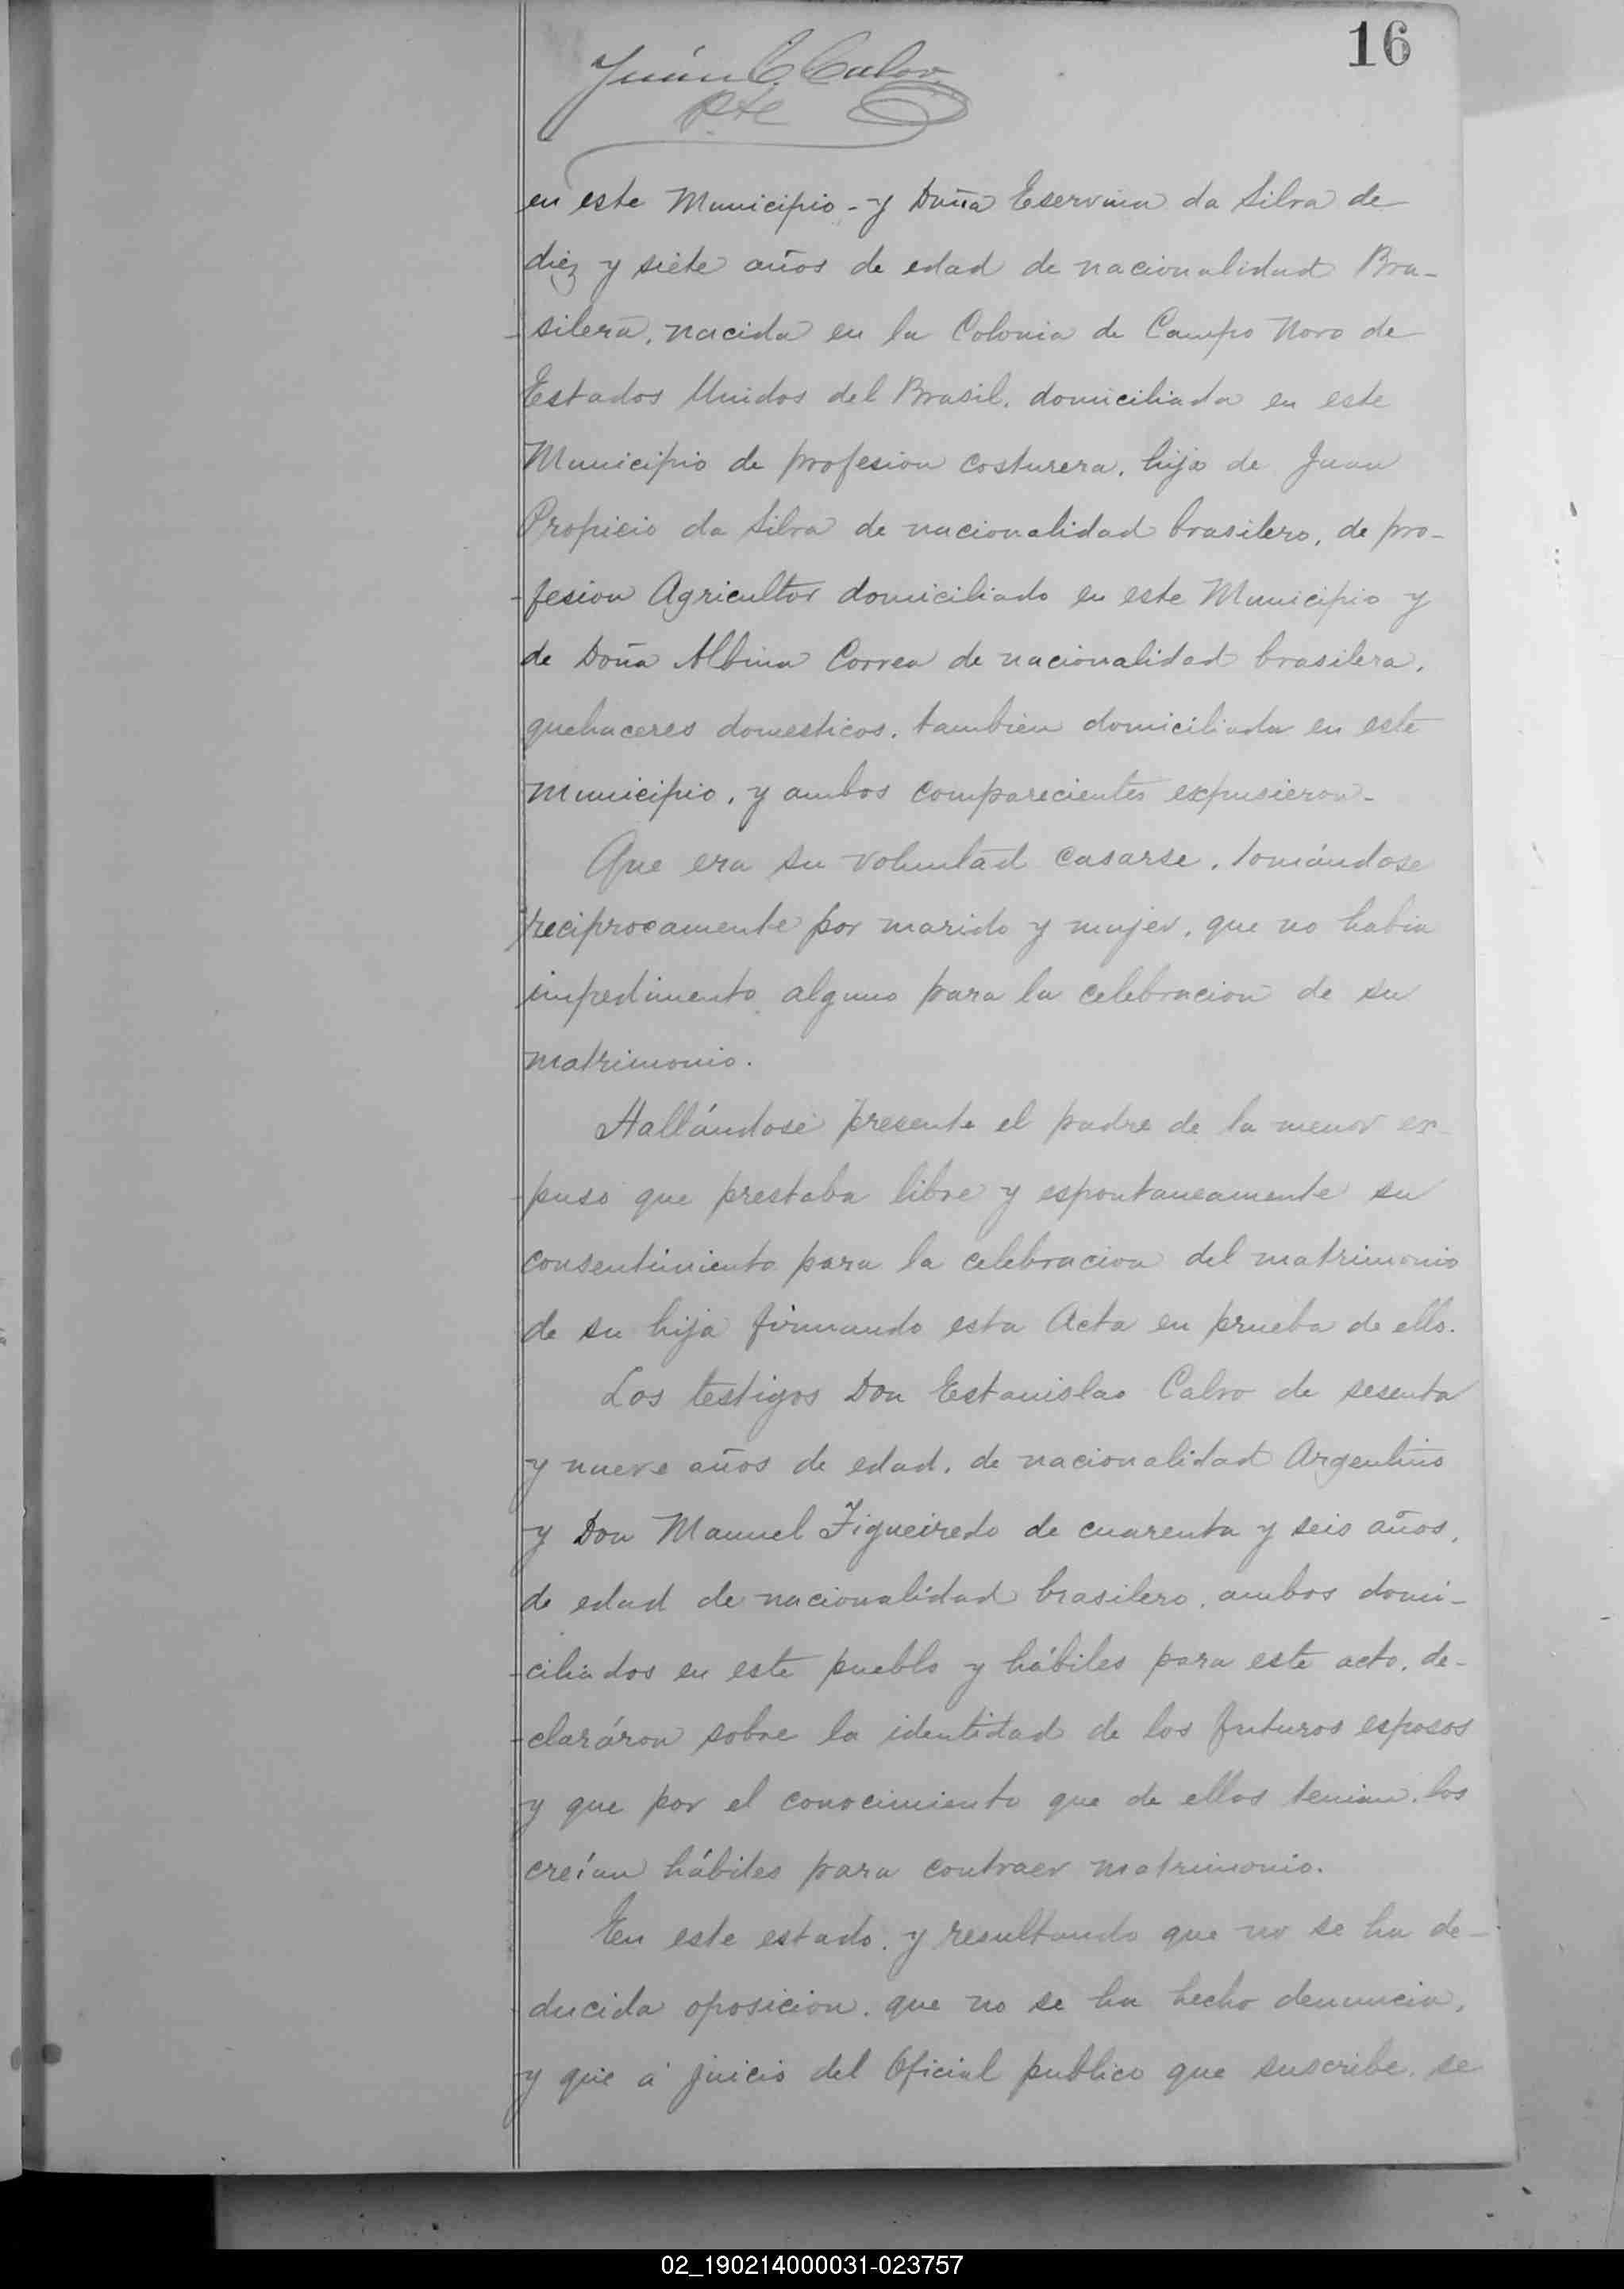 16
Juán C. Calvo
Pte
en este Municipio - y Doña Eservina da Silva de
diez y siete años de edad de nacionalidad Bra-
-silera, nacida en la Colonia de Campo Novo de
Estados Unidos del Brasil, domiciliada en este
Municipio de profesion costurera, hija de Juan
Propicio da Silva de nacionalidad brasilero, de pro-
-fesion Agricultor domiciliado en este Municipio y
de Doña Albina Correa de nacionalidad brasilera,
quehaceres domesticos, tambien domiciliada en este
Municipio, y ambos comparecientes expusieron-
Que era su voluntad casarse, tomándose
reciprocamente por marido y mujer, que no habia
impedimento alguno para la celebracion de su
matrimonio.
Hallándose presente el padre de la menor ex-
-puso que prestaba libre y espontaneamente su
consentimiento para la celebracion del matrimonio
de su hija firmando esta Acta en prueba de ello.
Los testigos Don Estanislao Calvo de sesenta
y nueve años de edad, de nacionalidad Argentino
y Don Manuel Figueiredo de cuarenta y seis años,
de edad de nacionalidad brasilero, ambos domi-
-ciliados en este pueblo y hábiles para este acto, de-
-claráron sobre la identidad de los futuros esposos
y que por el conocimiento que de ellos tenian, los
creían hábiles para contraer matrimonio.
En este estado, y resultando que no se ha de-
-ducida oposicion, que no se ha hecho denuncia,
y que á juicio del Oficial publico que suscribe, se
02_190214000031-023757